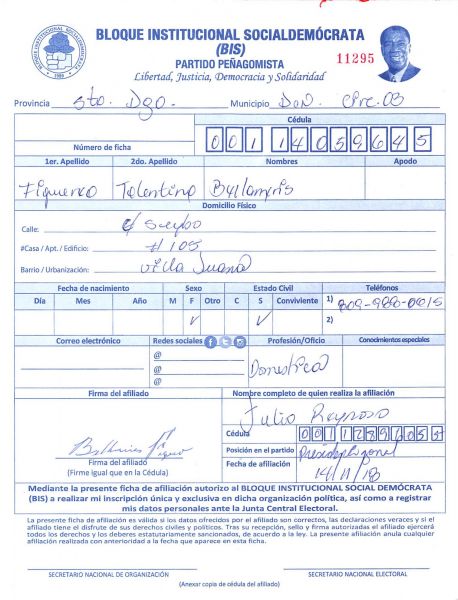 BLOQUE INSTITUCIONAL SOCIALDEMÓCRATA
(BIS)
PARTIDO PEÑAGOMISTA
11295
Libertad, Justicia, Democracia y Solidaridad
Provincia Sto. Dgo. Municipio D.N. Circ. 03
Cédula
Número de ficha 001 1405964 5
1er. Apellido 2do. Apellido Nombres Apodo
Figuereo Tolentino
Domicilio Físico
Calle: c/ Seybo
#Casa / Apt. / Edificio: # 105
Barrio / Urbanización: Villa Juana
Fecha de nacimiento Sexo Estado Civil Teléfonos
Día Mes Año M F Otro C S Conviniente 1) 809-980-0015
✓ ✓ 2)
Correo electrónico Redes sociales Profesión/Oficio Conocimientos especiales
@
@ Domestica
@
Firma del afiliado Nombre completo de quien realiza la afiliación
Julio Reynoso
Cédula 001 1289605
Posición en el partido
Firma del afiliado
(Firme igual que en la Cédula)
Fecha de afiliación 14/11/18
Mediante la presente ficha de afiliación autorizo al BLOQUE INSTITUCIONAL SOCIAL DEMÓCRATA
(BIS) a realizar mi inscripción única y exclusiva en dicha organización política, así como a registrar
mis datos personales ante la Junta Central Electoral.
La presente ficha de afiliación es válida si los datos ofrecidos por el afiliado son correctos, las declaraciones veraces y si el
afiliado tiene el disfrute de sus derechos civiles y políticos. Tras su recepción, sello y firma autorizada el afiliado ejercerá
todos los derechos y los deberes estatutariamente sancionados, de acuerdo a la ley. La presente afiliación anula cualquier
afiliación realizada con anterioridad a la fecha que aparece en esta ficha.
SECRETARIO NACIONAL DE ORGANIZACIÓN SECRETARIO NACIONAL ELECTORAL
(Anexar copia de cédula del afiliado)